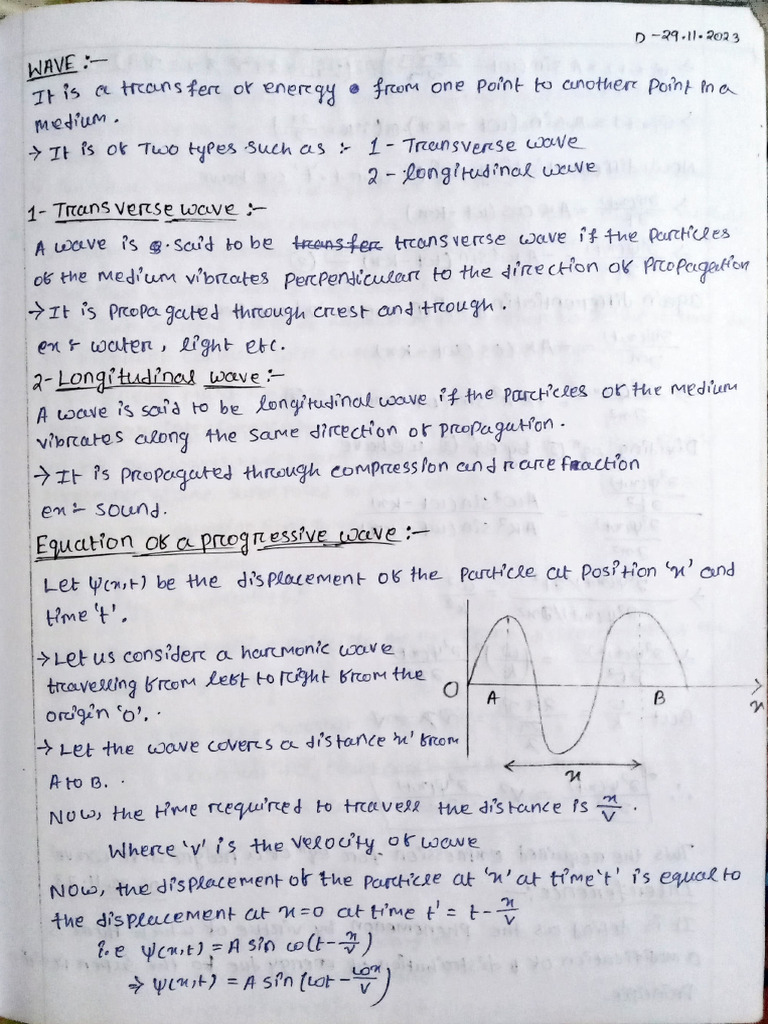 D-29.11.2023
WAVE :-
It is a transfer of energy from one point to another point in a
medium.
→ It is of Two types such as :- 1 - Transverse wave
2 - longitudinal wave
1- Transverse wave :-
A wave is said to be transfer transverse wave if the particles
of the medium vibrates perpendicular to the direction of propagation
→ It is propagated through crest and trough.
ex :- water, light etc.
2- Longitudinal wave :-
A wave is said to be longitudinal wave if the particles of the medium
vibrates along the same direction of propagation.
→ It is propagated through compression and rarefraction
ex :- sound.
Equation of a progressive wave :-
Let ψ(x,t) be the displacement of the particle at position 'x' and
time 't'.
→ Let us consider a harmonic wave
travelling from left to right from the
origin 'O'.
→ Let the wave covers a distance 'x' from
A to B.
O A B x
x
Now, the time required to travell the distance is x/v.
Where 'v' is the velocity of wave
Now, the displacement of the particle at 'x' at time 't' is equal to
the displacement at x=0 at time t' = t - x/v
i.e ψ(x,t) = A sin ω(t - x/v)
⇒ ψ(x,t) = A sin (ωt - ωx/v)